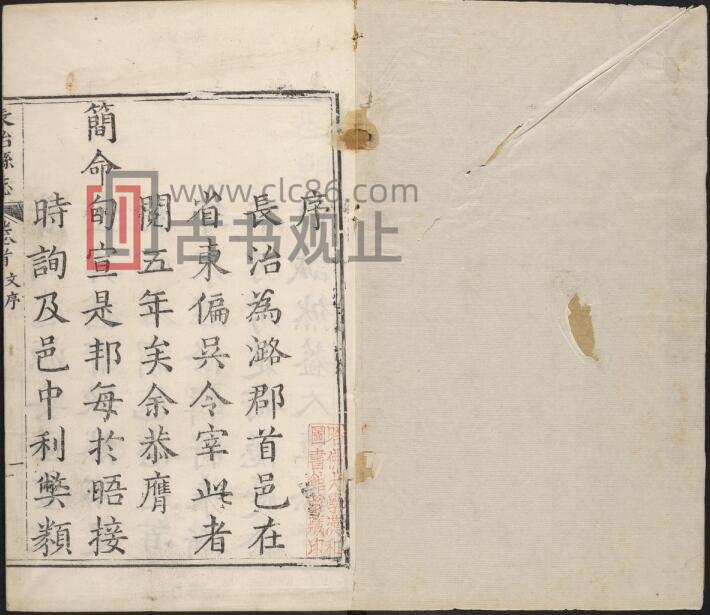 序
長治為潞郡首邑在
省東偏吳令宰此者
閱五年矣余恭膺
簡命旬宣是邦每於晤接
時詢及邑中利獘類
長治縣志
卷首 文序
一
www.clc86.com
古书观止
圖書館藏印